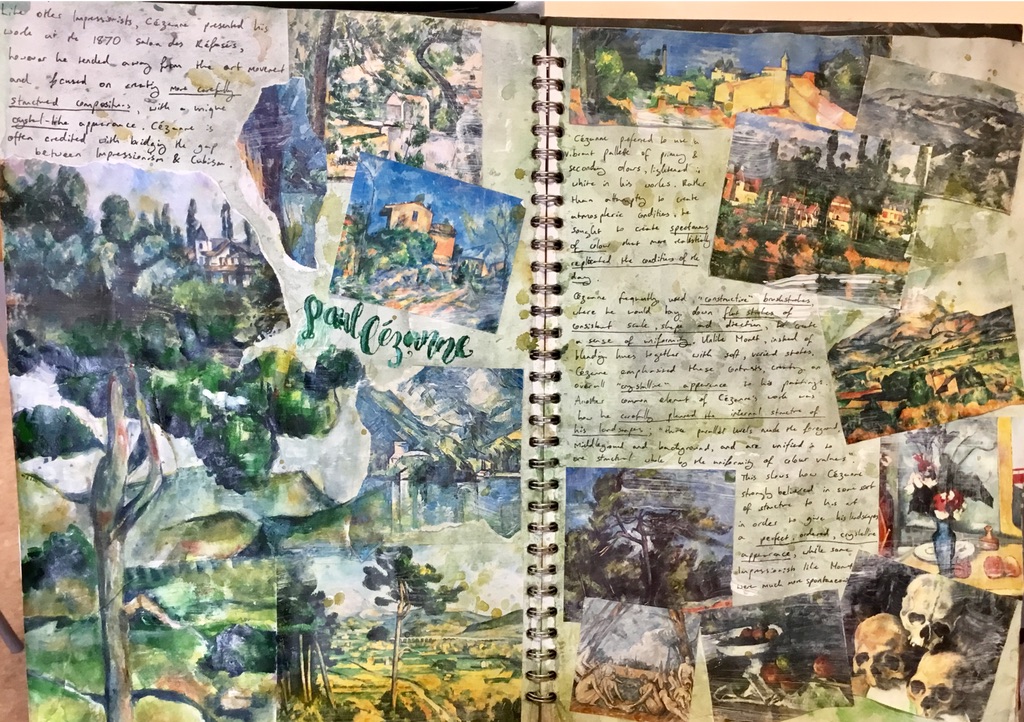 Like other Impressionists, Cézanne presented his
work at the 1870 Salon des Réfusés,
however he tended away from the art movement
and focused on creating more carefully
structured compositions with a unique
crystal-like appearance. Cézanne is
often credited with bridging the gap
between Impressionism & Cubism.
Paul Cézanne
Cézanne preferred to use a
vibrant pallete of primary &
secondary colours, lightened
white in his works. Rather
than attempting to create
atmospheric conditions, he
sought to create spectrums
of colour that more realistically
replicated the conditions of the
day.
Cézanne frequently used "constructive" brushstrokes,
where he would lay down flat strokes of
consistent scale, shape and direction, to create
a sense of uniformity. Unlike Monet, instead of
blending hues together with soft, varied strokes,
Cézanne emphasised these contrasts, creating an
overall "crystalline" appearance to his paintings.
Another common element of Cézanne's work was
how he carefully planned the internal structure of
his landscapes - three parallel levels make the foreground,
middleground and background, and are unified into
one structural whole by the uniformity of colour values.
This shows how Cézanne
strongly believed in some sort
of structure to his art
in order to give his landscapes
a perfect, ordered, crystalline
appearance, while some
Impressionists like Monet
were much more spontaneous